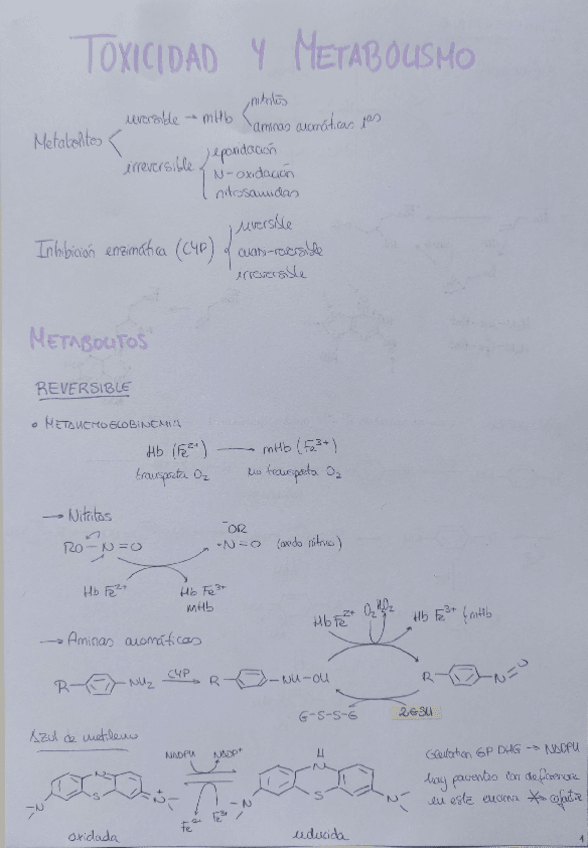 TOXICIDAD Y METABOLISMO
Metabolitos
reversible → mHb
nitritos
aminas aromáticas 1as
irreversible
epoxidación
N-oxidación
nitrosamidas
Inhibición enzimática (CYP)
reversible
cuasi-reversible
irreversible
METABOLITOS
REVERSIBLE
• METAHEMOGLOBINEMIA
Hb (Fe²⁺) → mHb (Fe³⁺)
transporta O₂ no transporta O₂
→ Nitritos
⁻OR
RO-N=O ·N=O (óxido nítrico)
Hb Fe²⁺ Hb Fe³⁺
mHb
→ Aminas aromáticas
Hb Fe²⁺ O₂ H₂O₂ Hb Fe³⁺ mHb
R NH₂ CYP R NH-OH R N=O
G-S-S-G 2GSH
Azul de metileno
NADPH NADP⁺
Fe²⁺ Fe³⁺
N S N⁺ N
H N S N N
oxidada reducida
→ NADPH
hay pacientes con deficiencia
en este enzima
1